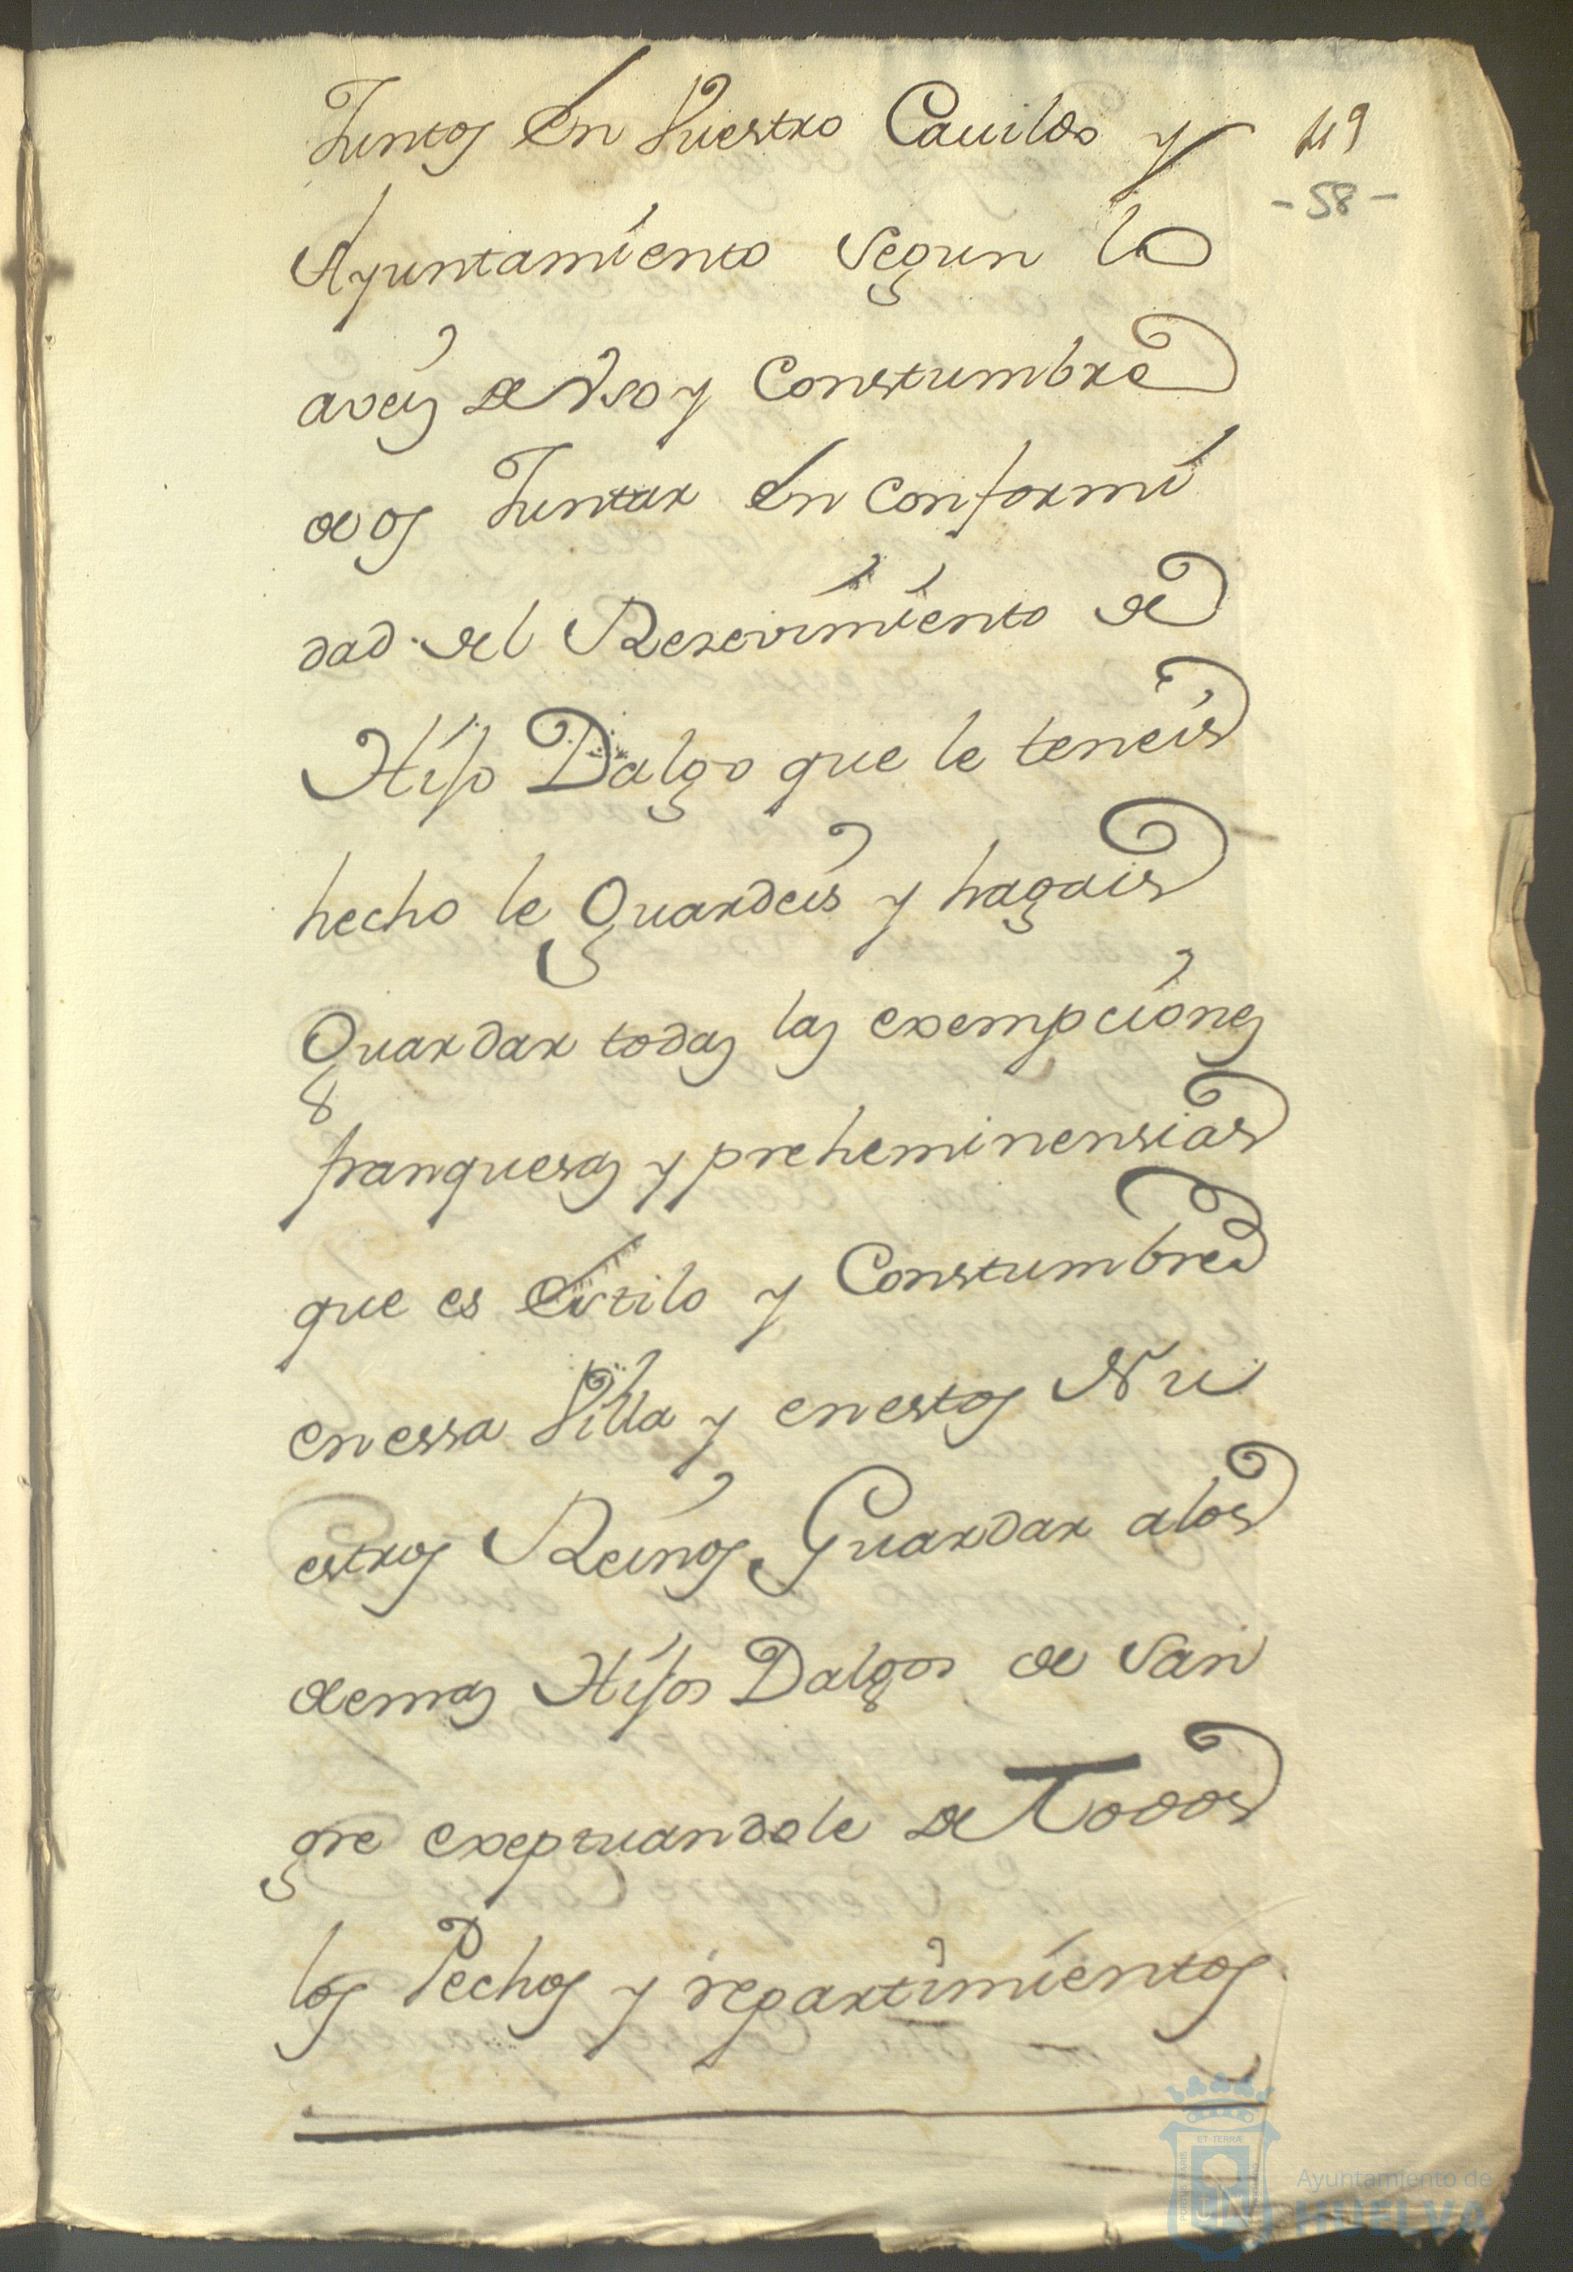 Juntos en Vuestro Cauildo y
Ayuntamiento segun lo
aveis de Vso y Constumbre
de os Juntar en conformi
dad del Resevimiento de
Hijo Dalgo que le teneis
hecho le Guardeis y hagais
Guardar todas las exempciones
franquesas y preheminensias
que es estilo y Constumbre
en essa Villa y en estos Nu
estros Reinos Guardar a los
demas Hijos Dalgos de San
gre exeptuandole de Todos
los Pechos y repartimientos
49
-58-
ET TERRÆ
Ayuntamiento de
HUELVA